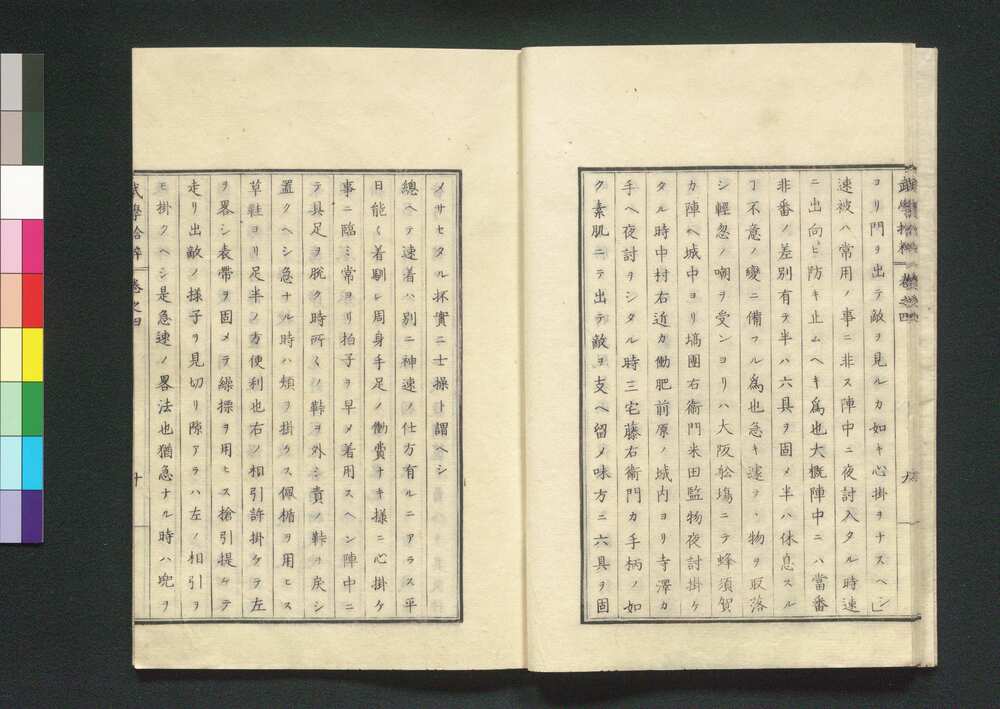 コリ門ヲ出テ敵ヲ見ルカ如キ心掛ヲナスヘシ」
速被ハ常用ノ事ニ非ス陣中ニ夜討入タル時速
ニ出向ヒ防キ止ムヘキ為也大概陣中ニハ當番
非番ノ差別有テ半ハ六具ヲ固メ半ハ休息スル
ヿ不意ノ變ニ備フル為也急キ遽ヲヽ物ヲ取落
シ輕忽ノ嘲ヲ受ンヨリハ大阪舩塲ニテ蜂須賀
カ陣ヘ城中ヨリ塙團右衞門米田監物夜討掛ケ
タル時中村右近カ働肥前原ノ城内ヨリ寺澤カ
手ヘ夜討ヲシタル時三宅藤右衞門カ手柄ノ如
ク素肌ニテ出テ敵ヲ支ヘ留ノ味方ニ六具ヲ固
メサセタル抔實ニ士操ト謂ヘシ
總ヘテ速着ハ別ニ神速ノ仕方有ルニアラス平
日能ク着馴レ周身手足ノ働費ナキ様ニ心掛ケ
事ニ臨ミ常ヨリ拍子ヲ早メ着用スヘシ陣中ニ
テ具足ヲ脱ク時所〱ノ鞐ヲ外シ責ノ鞐ヲ戻シ
置クヘシ急ナル時ハ頬ヲ掛ケス佩楯ヲ用ヒス
草鞋ヨリ足半ノ方便利也右ノ相引許掛ケテ左
ヲ畧シ表帶ヲ固メテ繰摽ヲ用ヒス搶引提ケテ
走リ出敵ノ様子ヲ見切リ隙アラハ左ノ相引ヲ
モ掛クヘシ是急速ノ畧法也猶急ナル時ハ兜ヲ
武學拾粹 卷之四 十